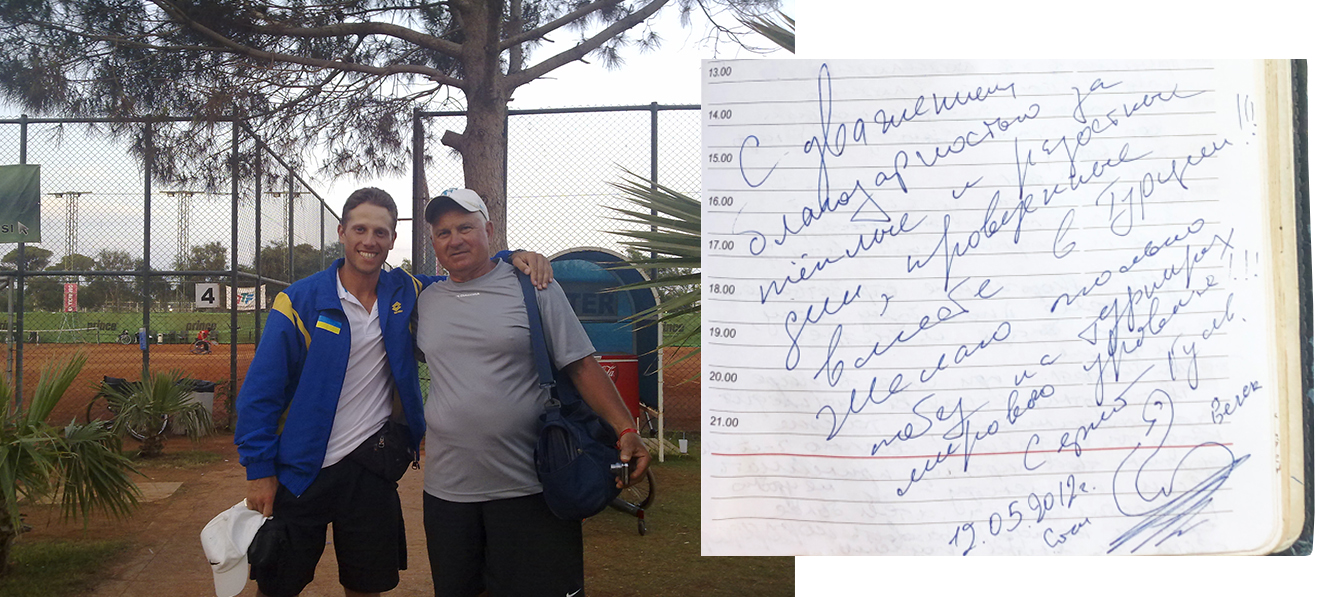 SI
4
PENALTY
prince
prince
TER
Coca-Cola
13.00
14.00
15.00
16.00
17.00
18.00
19.00
20.00
21.00
С уважением,
благодарностью за
тёплые и радостные
дни, проведенные
вместе в Турции!!!
Желаю только
побед на турнирах
мирового уровня!!!
Сергей
19.05.2012г.